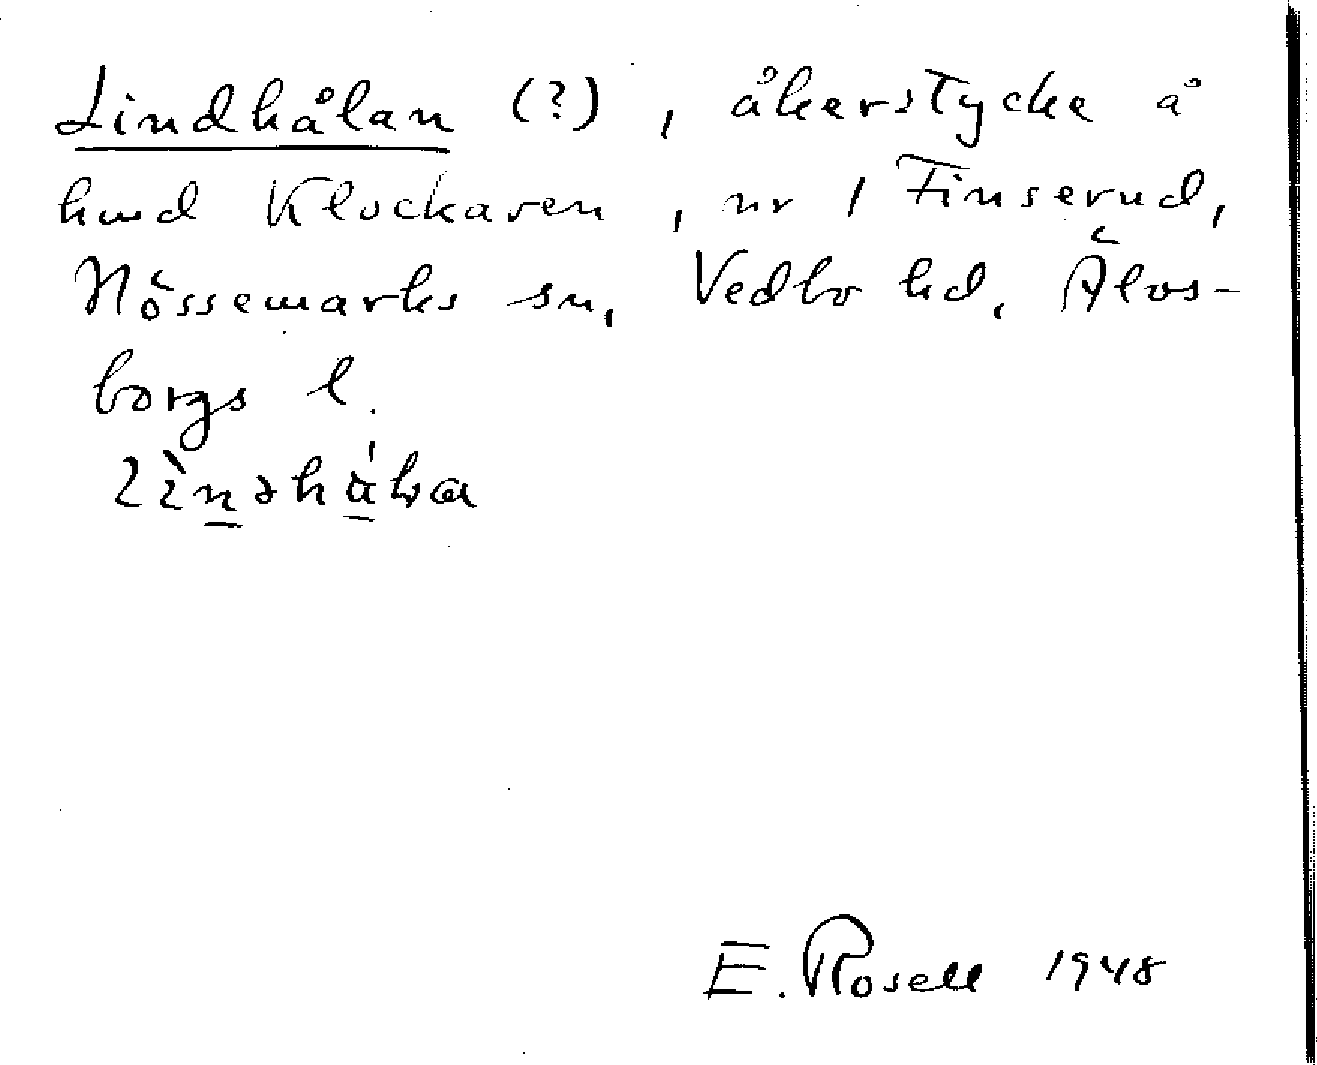 Lindhålan (?), åkerstycke å
hmd Klockaren, nr 1 Finserud,
Nössemarks sn, Vedbo hd, Älvs-
borgs l.
E. Rosell 1948